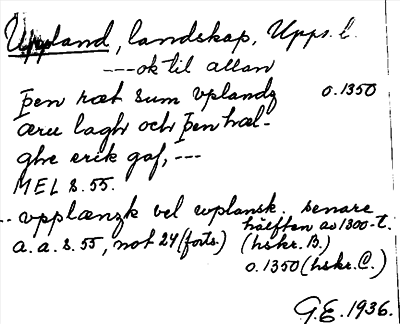 Uppland, landskap, Upps. l.
---ok til allan
þen ræt sum vplandz o.1350
æru lagh och þen hæl-
ghe erik gaf, ---
MEL s. 55.
-- vpplænzk vel wplansk. senare
hälften av 1300-t.
a.a. s. 55, not 24 (forts.) (hskr. B.)
o.1350 (hskr. C.)
G.E. 1936.